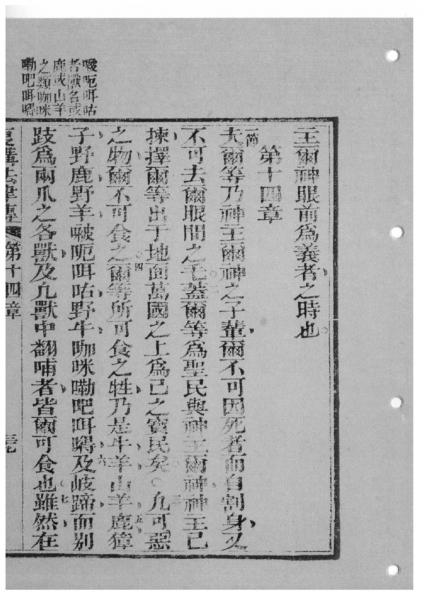 王爾神眼前爲義者之時也
第十四章
一節
夫爾等乃神王爾神之子輩爾不可因死者而自割身又
不可去爾眼間之毛蓋爾等爲聖民與神王爾神神王已
揀擇爾等出于地面萬國之上爲己之寶民矣三凡可惡
之物爾不可食之四爾等所可食之牲乃是牛羊山羊五鹿獐
子野鹿野羊㘄呃咡咕野牛咖咪嘞吧咡㗁六及岐蹄而別
歧爲兩爪之各獸及凡獸中翻哺者皆爾可食也七雖然在
復講法律傳 第十四章
㘄呃咡咕
者獸名或
鹿或山羊
之類咖咪
嘞吧咡㗁